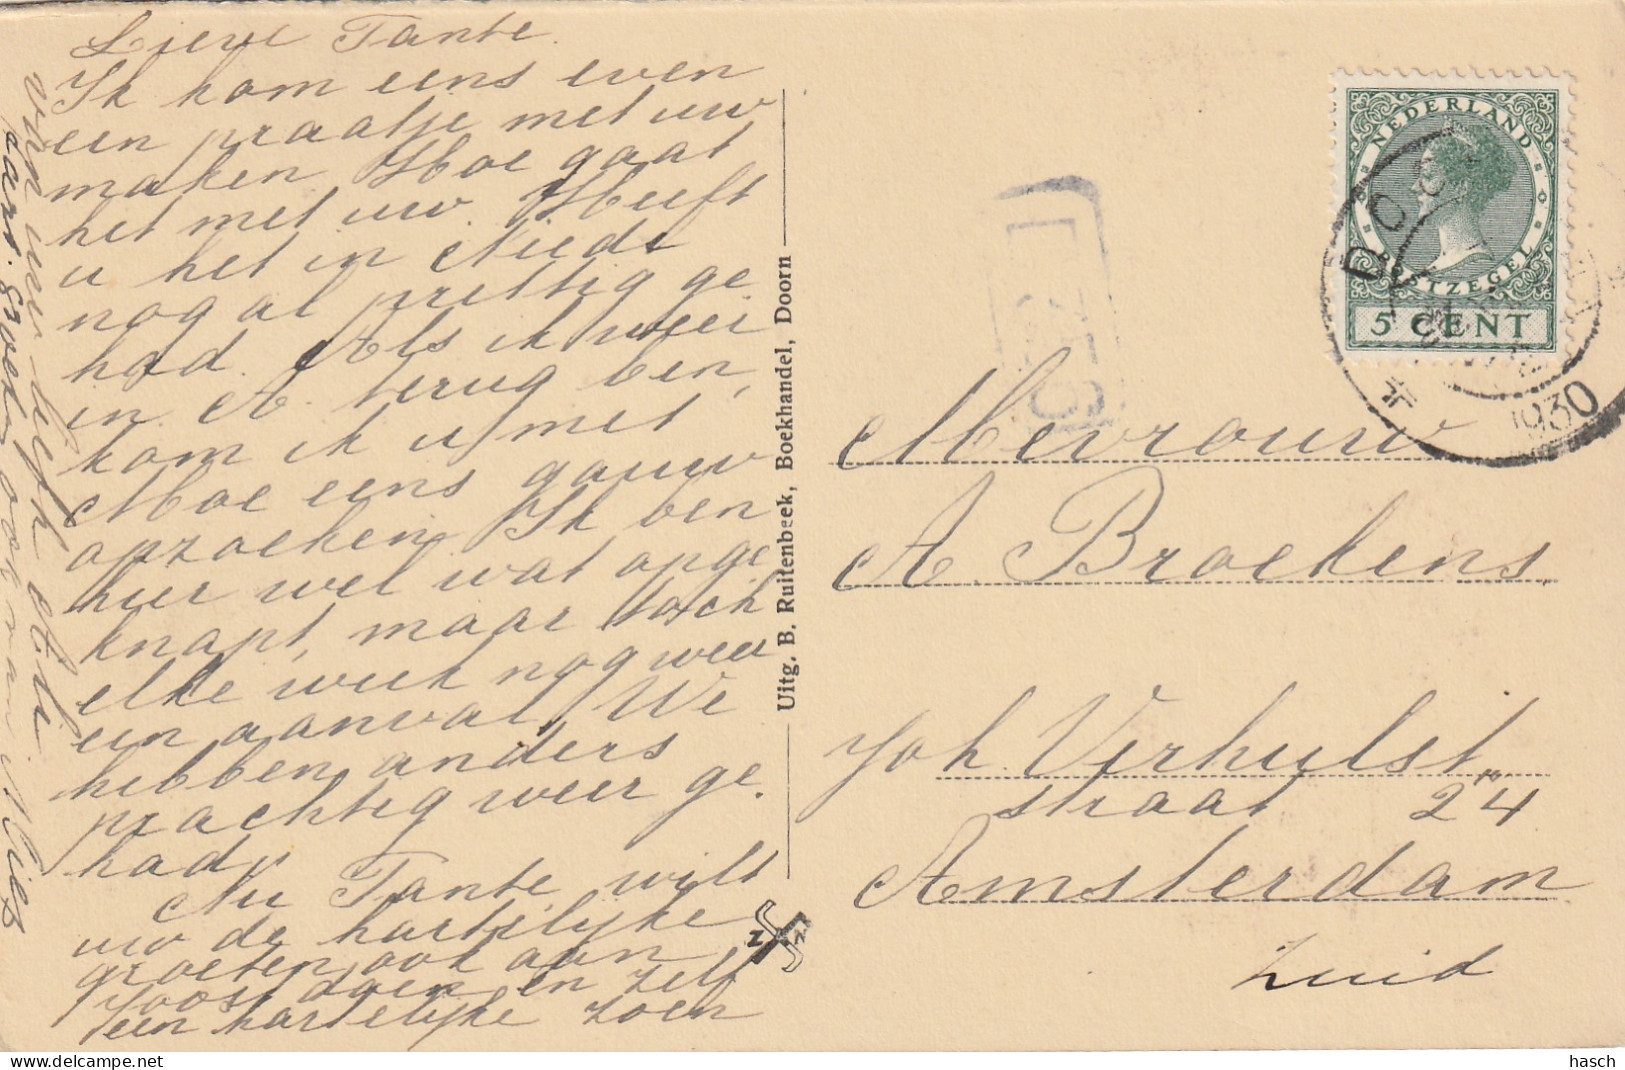 Lieve Tante.
Ik kom eens even
een praatje met uw
maken Hoe gaat
het met uw. Heeft
u het in
nog al prettig ge
had. Als ik weer
in A. terug ben,
kom ik u met
Moe eens gauw
opzoeken. Ik ben
hier wel wat opge
knapt, maar toch
elke week nog weer
een aanval, We
hebben anders
prachtig weer ge.
had,
Nu Tante, wilt
uw de hartelijke
groeten ook aan
Joost doen en zelf
een hartelijke zoen
van uw liefh
groeten ook van
Uitg. B. Ruitenbeek, Boekhandel, Doorn
NEDERLAND
POSTZEGEL
5 CENT
1930
Mevrouw
A. Broekens.
Joh. Verhulst
straat 24
Amsterdam
Zuid
hasch